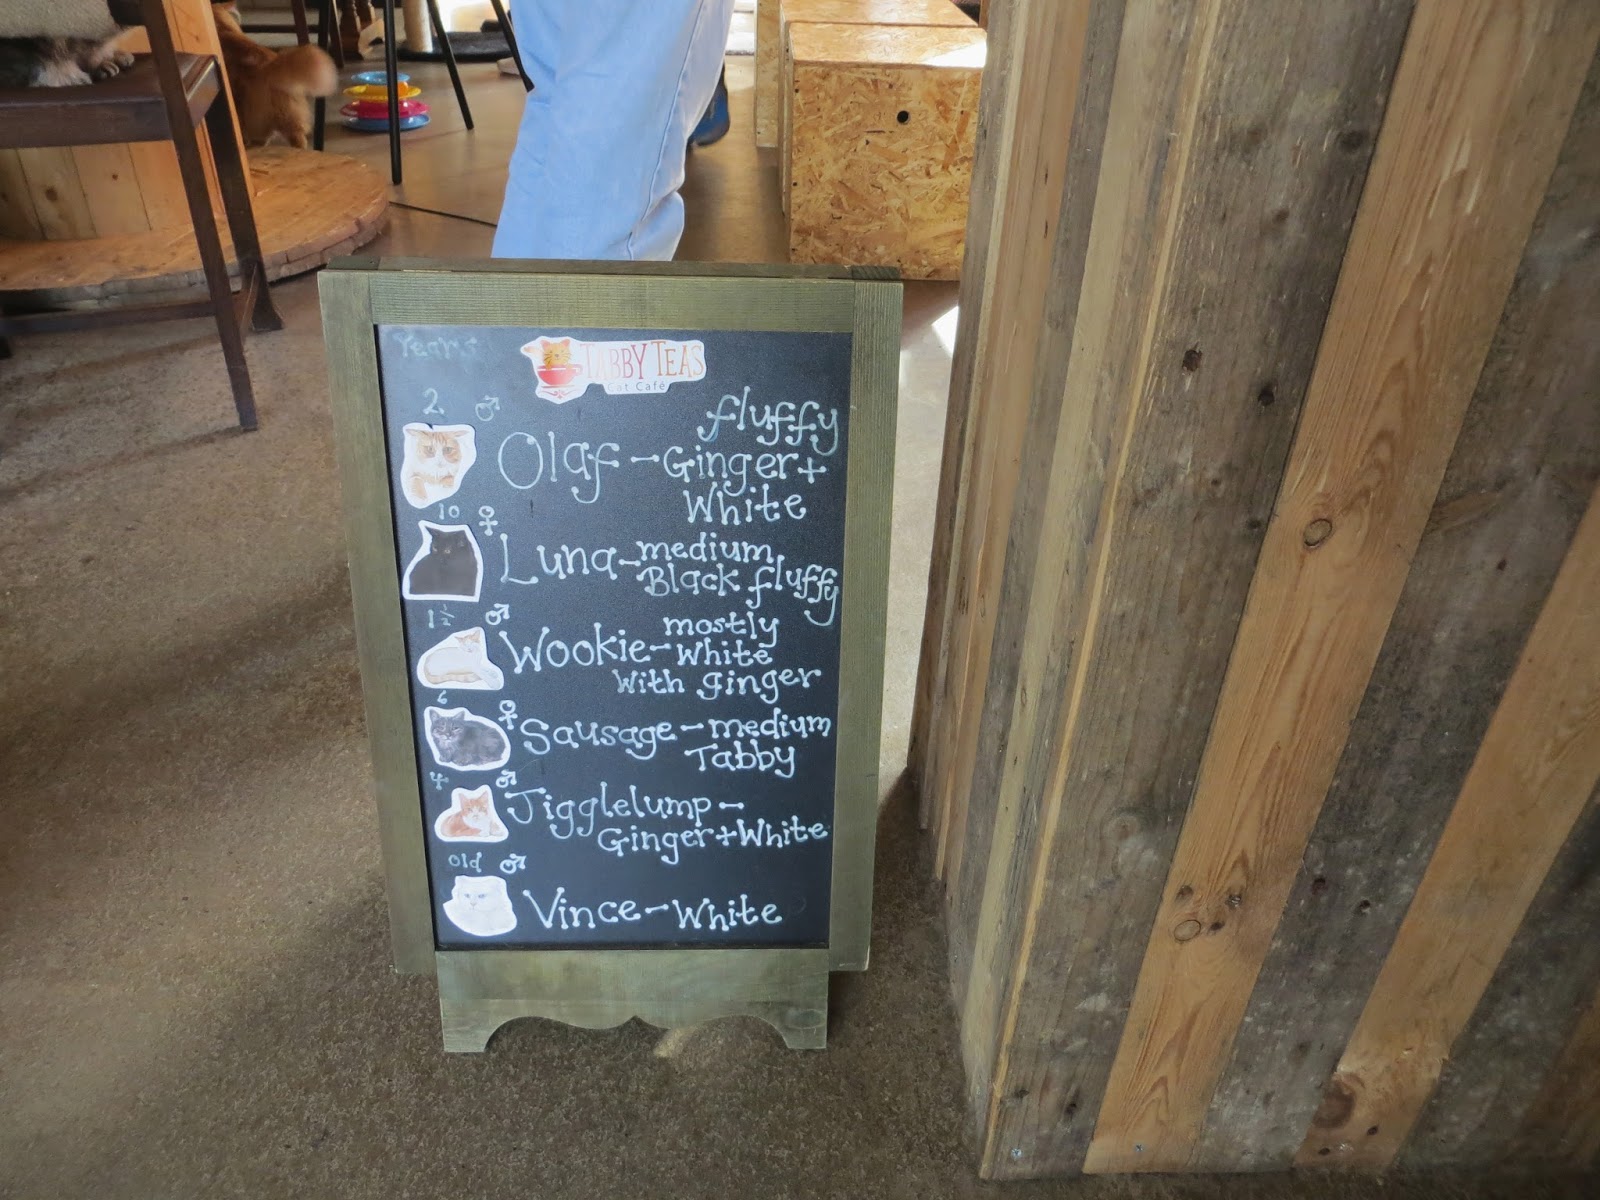 Years
TABBY TEAS
Cat Café
2 ♂
fluffy
Olaf - Ginger +
White
10 ♀
Luna - medium
Black fluffy
1½ ♂
mostly
Wookie - White
With ginger
6 ♀
Sausage - medium
Tabby
4 ♂
Jigglelump -
Ginger + White
old ♂
Vince - White